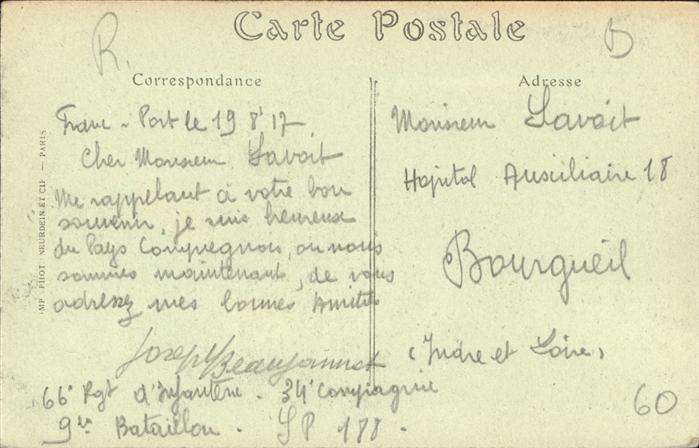 Carte Postale
R.
D
Correspondance
Franc-Port le 19 8' 17.
Cher Monsieur Lavoit
Me rappelant à votre bon
souvenir, je suis heureux
du Pays Compiegnois, où nous
sommes maintenant, de vous
adressez mes bonnes Amitiés
Joseph Beaujannot
66e Rgt d'Infanterie. 34e Compagnie
9e Bataillon. SP 178.
Adresse
Monsieur Lavoit
Hopital Auxiliaire 18
Bourgueil
(Indre et Loire)
60
IMP. PHOT. NEURDEIN ET Cie — PARIS